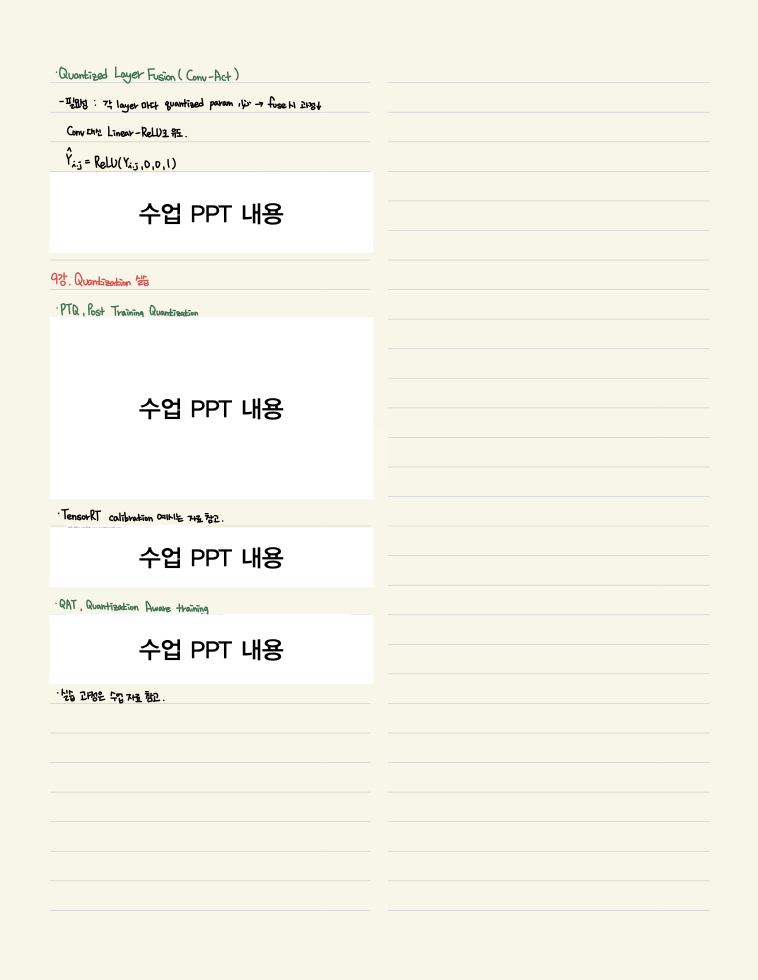 ·Quantized Layer Fusion (Conv-Act)
-필요성 : 각 layer 마다 quantized param → fuse시 과정↓
Conv 대신 Linear-ReLU로 유도.
Ŷi,j = ReLU(Yi,j,0,0,1)
수업 PPT 내용
9강. Quantization 실습
·PTQ, Post Training Quantization
수업 PPT 내용
·TensorRT calibration 예시는 자료 참고.
수업 PPT 내용
·QAT, Quantization Aware training
수업 PPT 내용
·실습 과정은 수업 자료 참고.